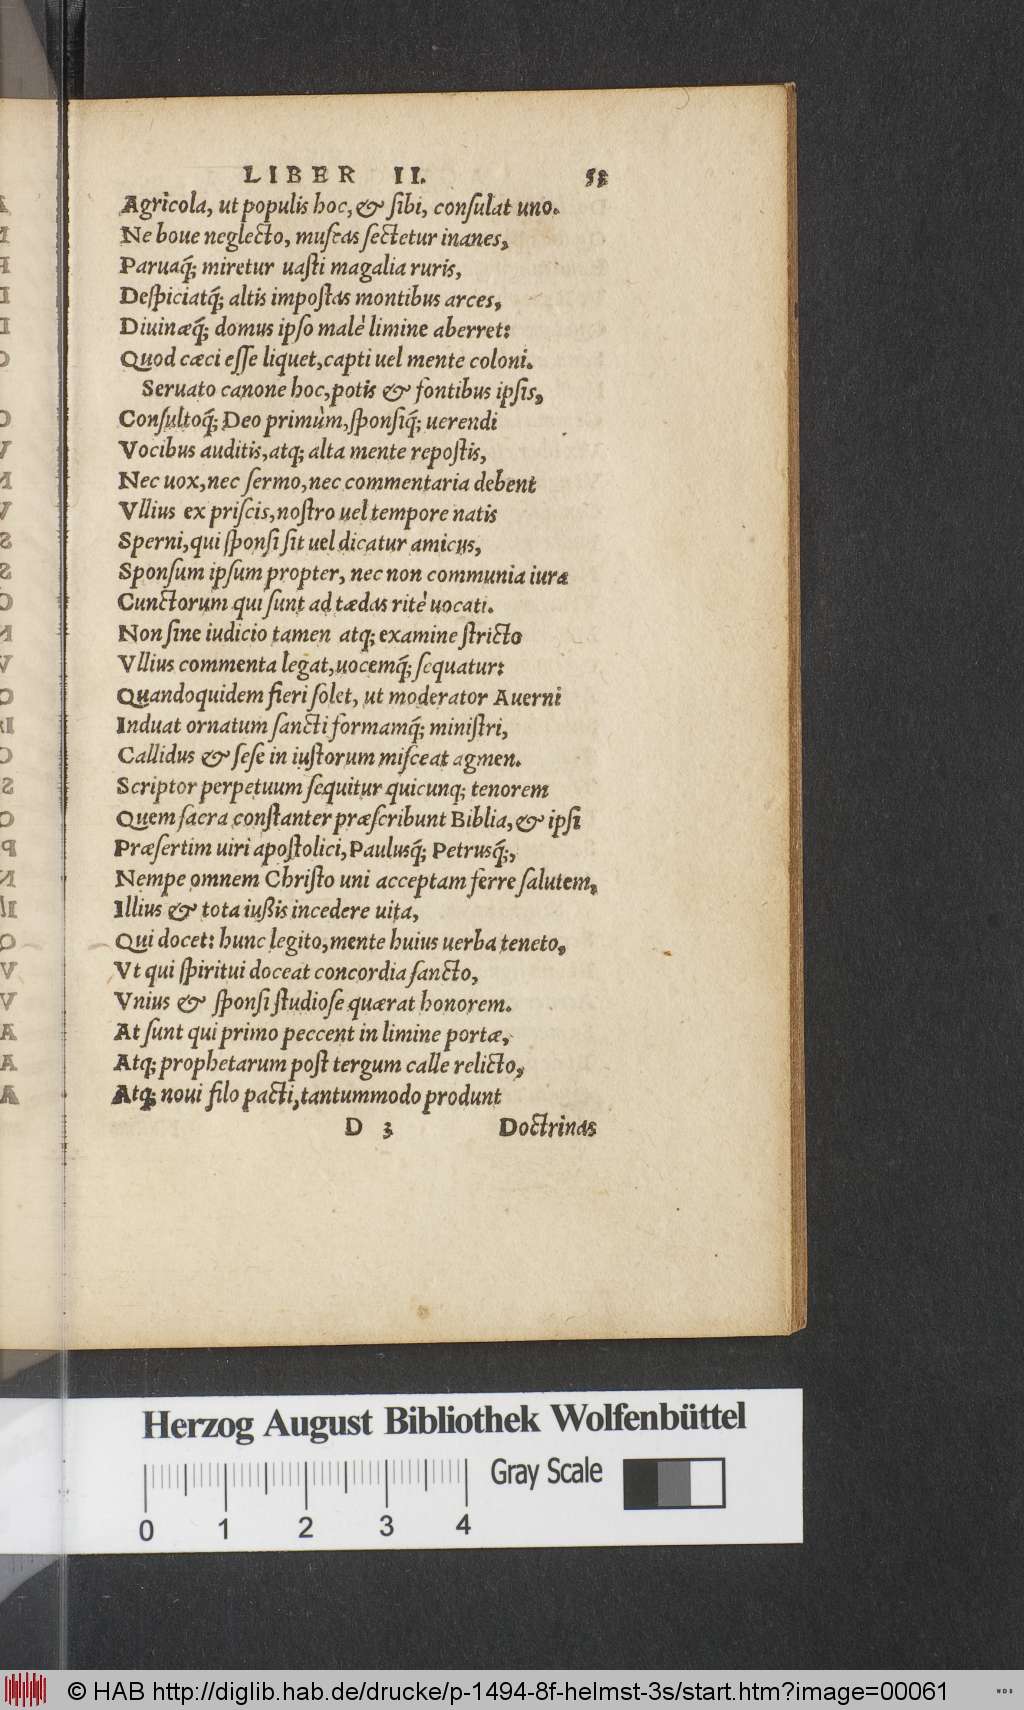 LIBER II. 53
Agricola, ut populis hoc, & ſibi, conſulat uno.
Ne boue neglecto, muſcas ſectetur inanes,
Paruaq́; miretur uaſti magalia ruris,
Deſpiciatq́; altis impoſtas montibus arces,
Diuinæq́; domus ipſo malè limine aberret:
Quod cæci eſſe liquet, capti uel mente coloni.
Seruato canone hoc, potis & fontibus ipſis,
Conſultoq́; Deo primùm, ſponſiq́; uerendi
Vocibus auditis, atq; alta mente repoſtis,
Nec uox, nec ſermo, nec commentaria debent
Vllius ex priſcis, noſtro uel tempore natis
Sperni, qui ſponſi ſit uel dicatur amicus,
Sponſum ipſum propter, nec non communia iura
Cunctorum qui ſunt ad tædas ritè uocati.
Non ſine iudicio tamen atq; examine ſtricto
Vllius commenta legat, uocemq́; ſequatur:
Quandoquidem fieri ſolet, ut moderator Auerni
Induat ornatum ſancti formamq́; miniſtri,
Callidus & ſeſe in iuſtorum miſceat agmen.
Scriptor perpetuum ſequitur quicunq; tenorem
Quem ſacra conſtanter præſcribunt Biblia, & ipſi
Præſertim uiri apoſtolici, Paulusq́; Petrusq́;,
Nempe omnem Chriſto uni acceptam ferre ſalutem,
Illius & tota iußis incedere uita,
Qui docet: hunc legito, mente huius uerba teneto,
Vt qui ſpiritui doceat concordia ſancto,
Vnius & ſponſi ſtudioſe quærat honorem.
At ſunt qui primo peccent in limine portæ,
Atq; prophetarum poſt tergum calle relicto,
Atq; noui filo pacti, tantummodo produnt
D 3 Doctrinas
Herzog August Bibliothek Wolfenbüttel
Gray Scale
0 1 2 3 4
© HAB http://diglib.hab.de/drucke/p-1494-8f-helmst-3s/start.htm?image=00061